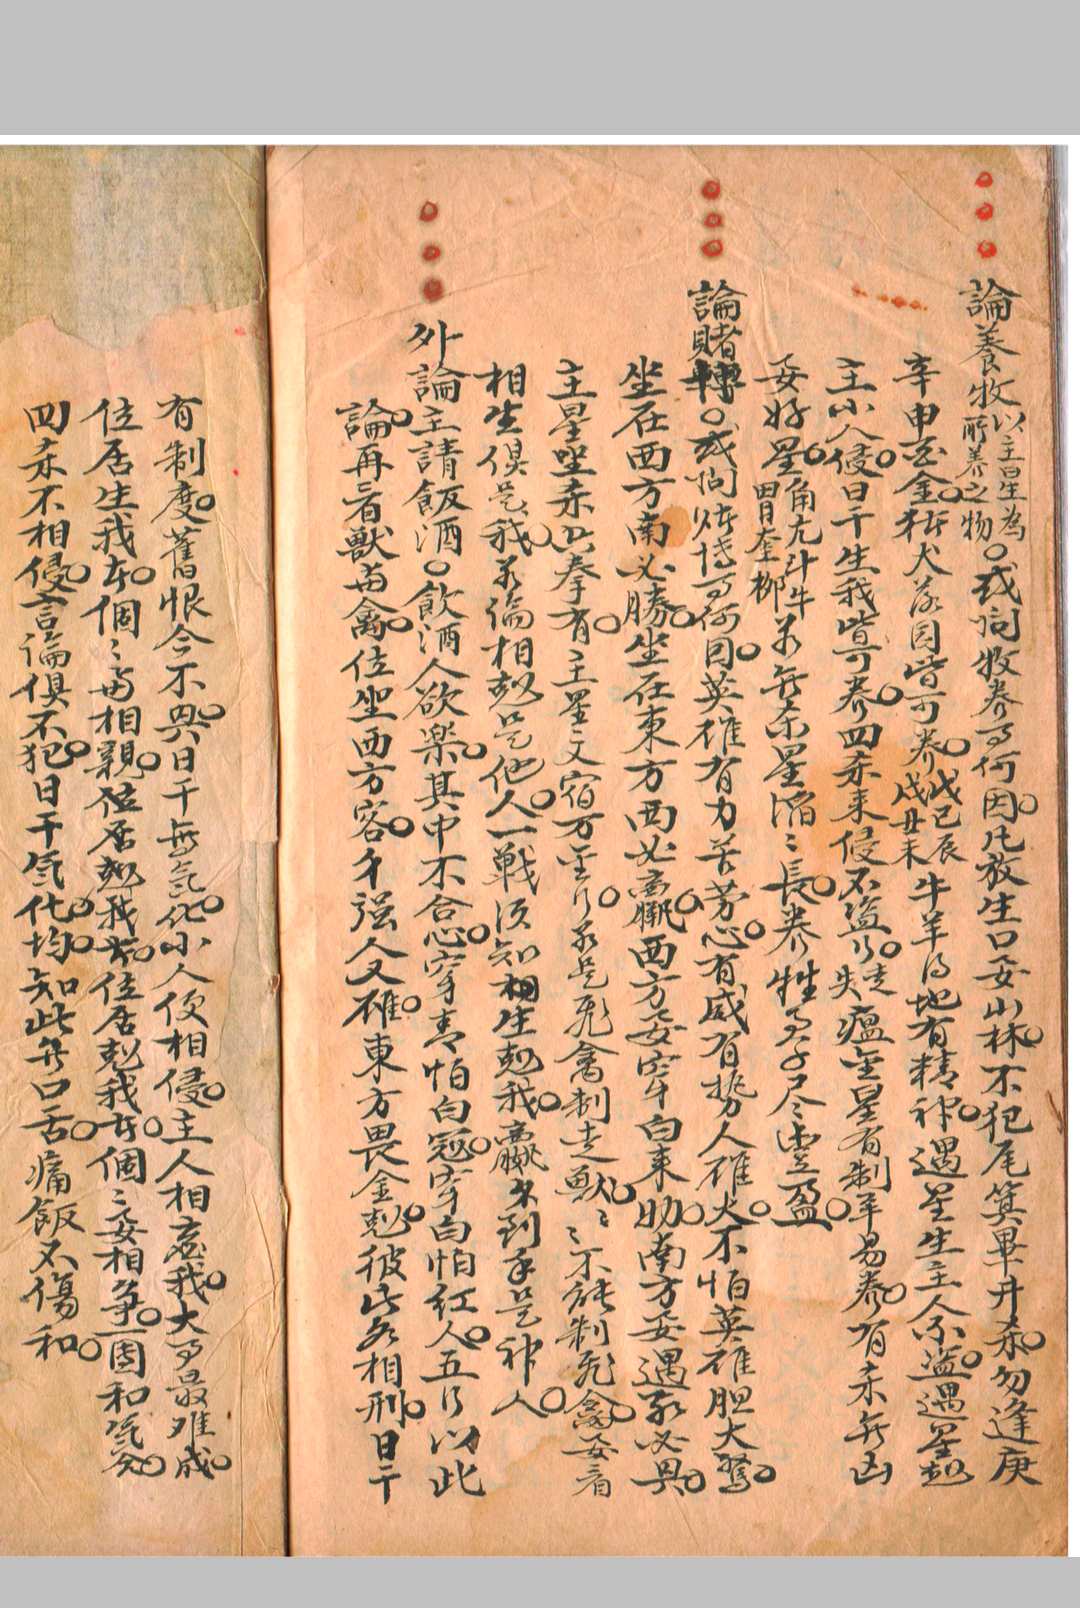 論養牧 以主星為所養之物。或問牧養事何因。凡放生口要山林。不犯尾箕畢井殺。勿逢庚
辛申酉金。猪犬落圈皆可养。戊己辰戌丑未牛羊得地有精神。遇星生主人不盗。遇星尅
主小人侵。日干生我皆可养。四杀来侵不盗乃走失。瘟星有制羊易养。有杀無凶
要好星。角亢斗牛胃奎柳 若無杀星陷。陷長养牲子尽豊盈。
論賭博。或问賭博事何因。英雄有力苦劳心。有威有势人雄火。不怕英雄胆大驚。
坐在西方南必勝。坐在東方西必贏。西方要穿白来助。南方要遇必畏。
主星坐杀以拳有。主星文宿万。若是飛禽制走獸。獸不能制飛禽。要看
相生俱是我。若論相尅是他人。一戰須知相生尅我。贏来到手是神人。
外論主請飯酒。飲酒人欲樂。其中不合心。穿青怕白冠。穿白怕红人。五行以此
論。再看獸与禽。位坐西方客。才强人又雄。東方畏金尅。彼此必相刑。日干
有制度。舊恨今不興。日干無氣化。小人便相侵。主人相刻我。大事最难成。
位居生我方。個個要相親。位居尅我方。位居尅我方。個個要相争。一團和氣
四杀不相侵。言論俱不犯。日干氣化均。知此無口舌。痛飯不傷和。